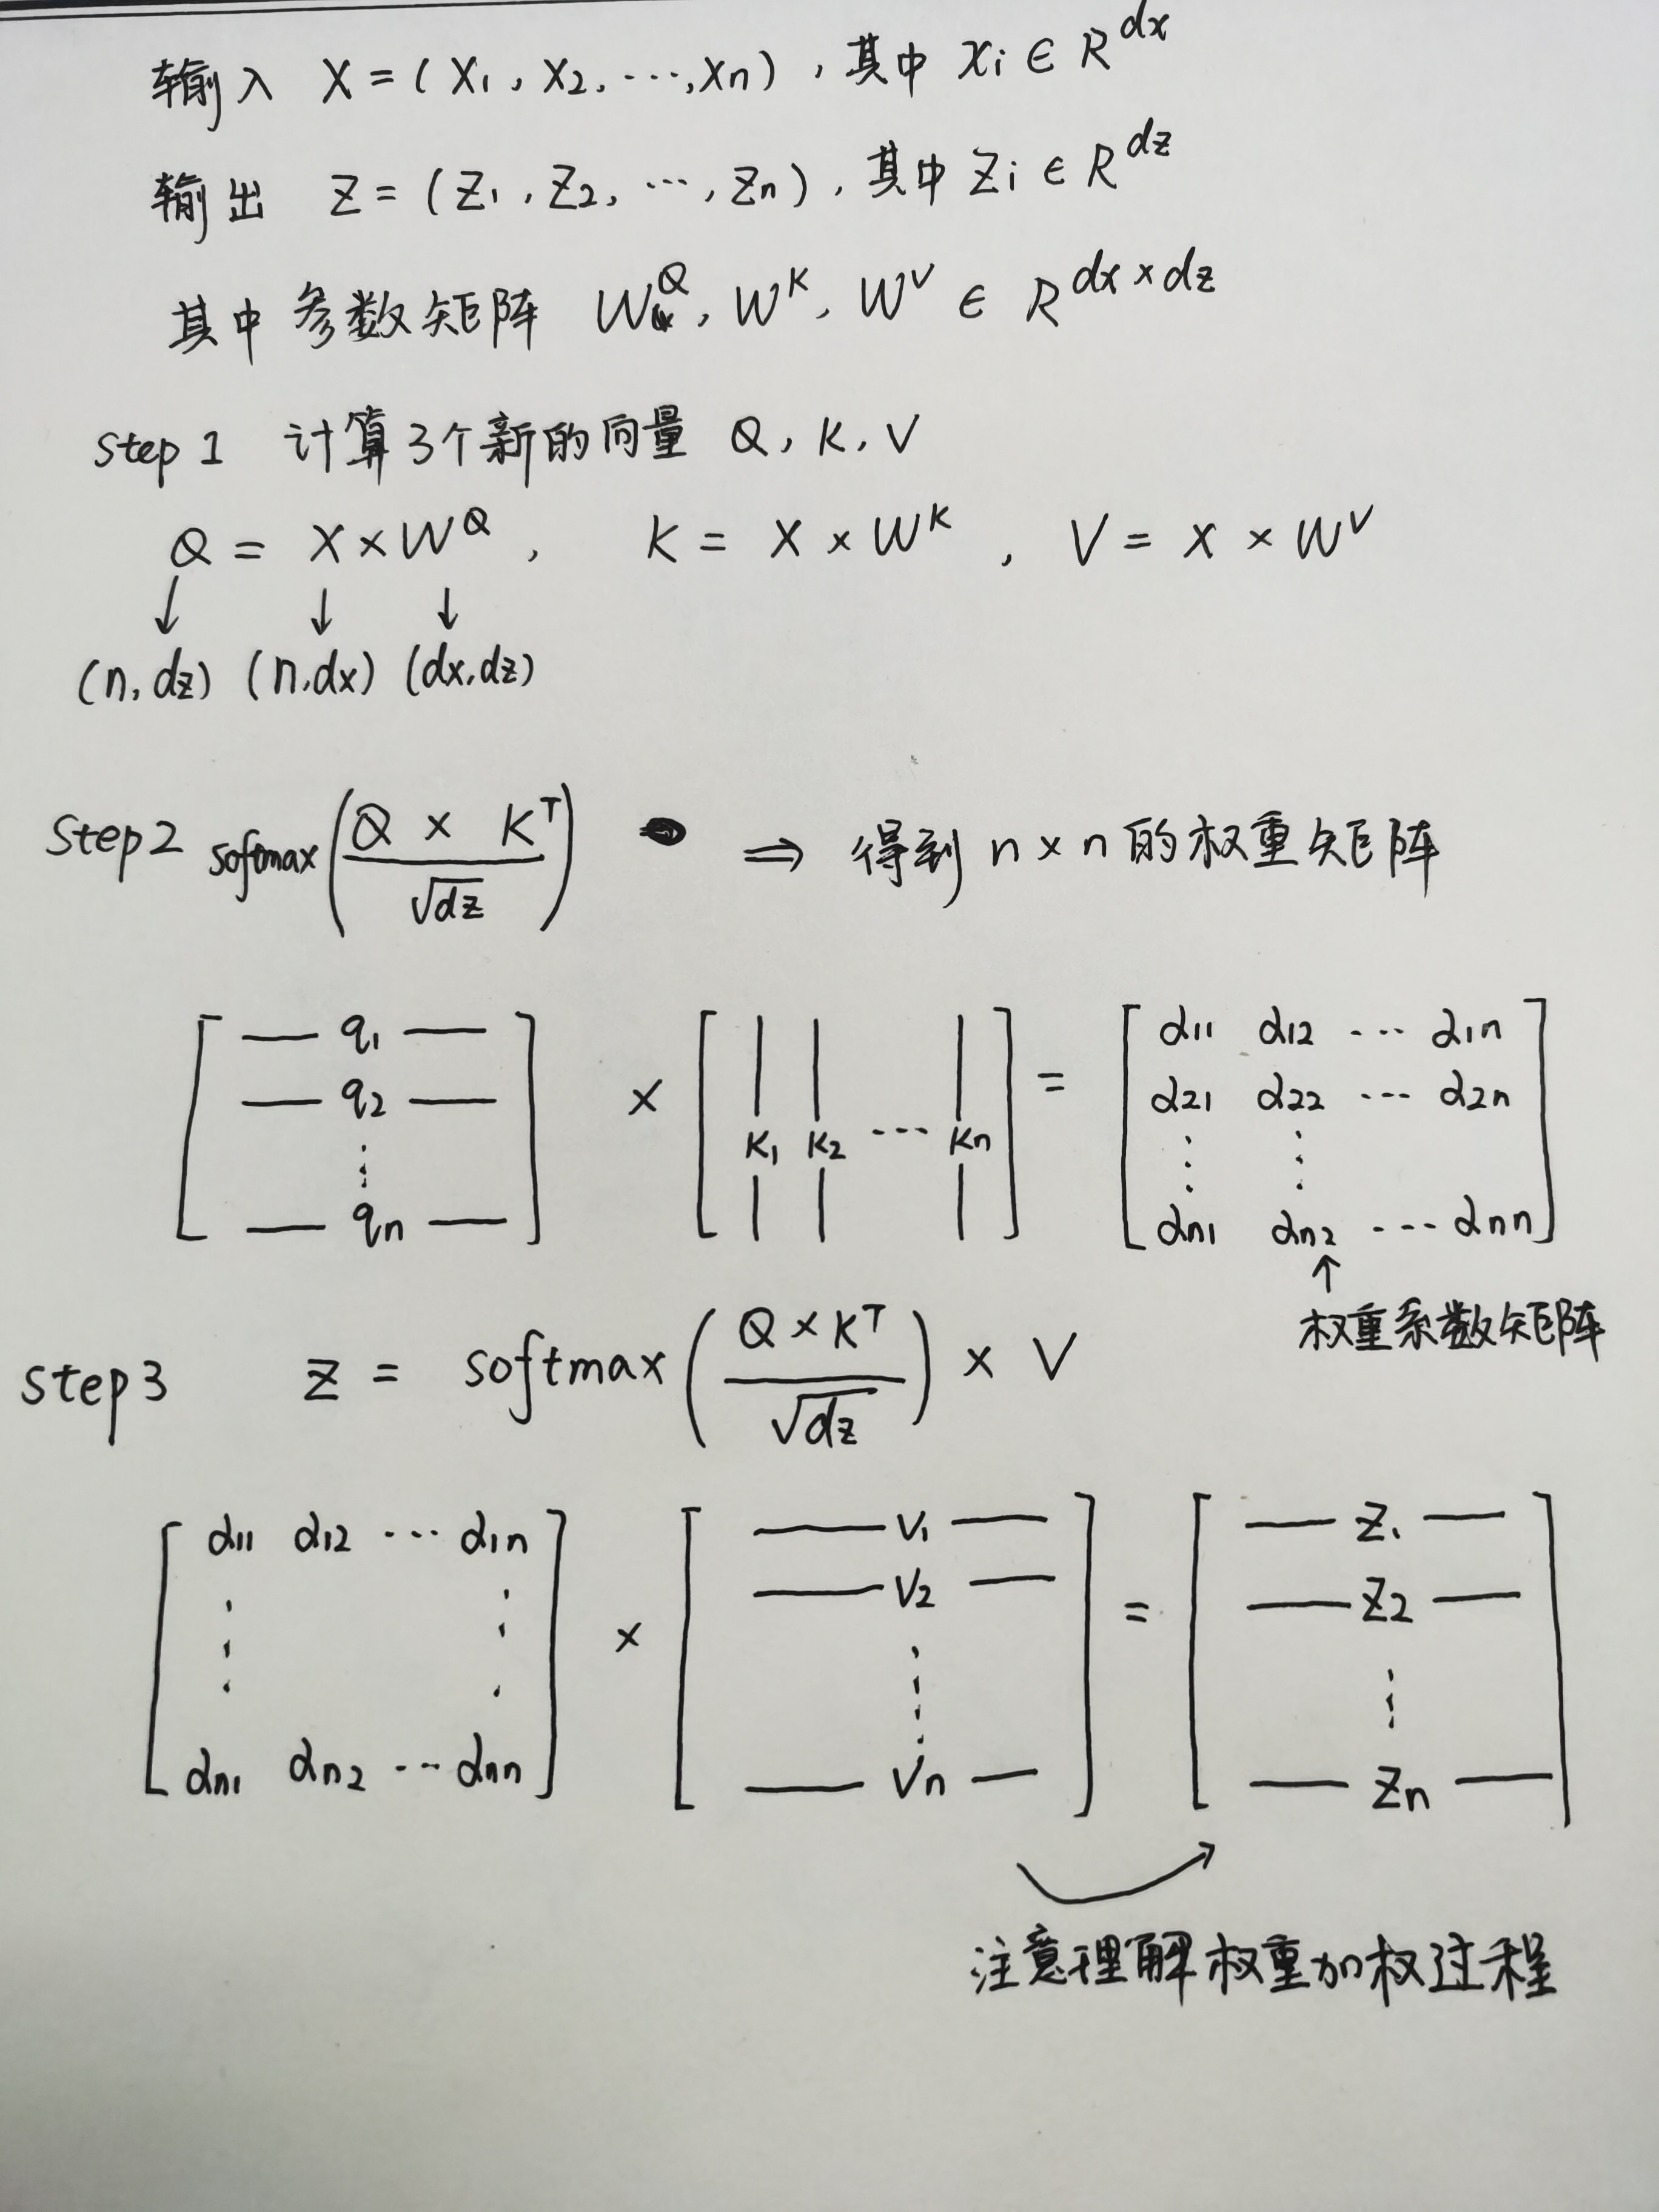 输入 X = ( X₁, X₂, ⋯, Xn ), 其中 xi ∈ R^dx
输出 Z = ( Z₁, Z₂, ⋯, Zn ), 其中 Zi ∈ R^dz
其中参数矩阵 W^Q, W^K, W^V ∈ R^dx×dz
step 1 计算3个新的向量 Q, K, V
Q = X × W^Q, K = X × W^K, V = X × W^V
↓ ↓ ↓
(n, dz) (n, dx) (dx, dz)
Step2 softmax( Q × K^T / √dz ) ⇒ 得到 n × n 的权重矩阵
[ — q₁ — ; — q₂ — ; ⋮ ; — qn — ] × [ K₁ K₂ ⋯ Kn ] = [ α11 α12 ⋯ α1n ; α21 α22 ⋯ α2n ; ⋮ ⋮ ; αn1 αn2 ⋯ αnn ]
↑
权重系数矩阵
step3 Z = softmax( Q × K^T / √dz ) × V
[ α11 α12 ⋯ α1n ; ⋮ ⋮ ; αn1 αn2 ⋯ αnn ] × [ — V₁ — ; — V₂ — ; ⋮ ; — Vn — ] = [ — Z₁ — ; — Z₂ — ; ⋮ ; — Zn — ]
注意理解权重加权过程